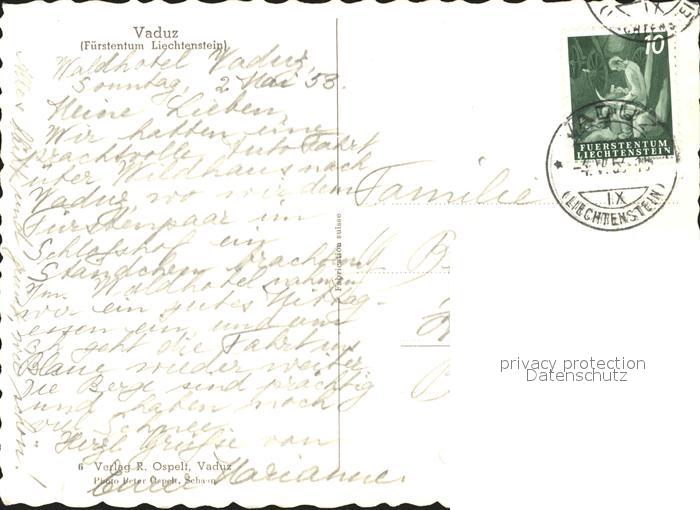 Vaduz
(Fürstentum Liechtenstein)
Waldhotel Vaduz,
Sonntag, 2 Mai 53.
Meine Lieben,
Wir hatten eine
prachtvolle Autofahrt
über Wildhaus nach
Vaduz, wo wir dem
Fürstenpaar im
Schlosshof ein
Ständchen brachten
Im Waldhotel nahmen
wir ein gutes Mittag-
essen ein, und um
geht die Fahrt ins
Blaue wieder weiter.
Die Berge sind prächtig
und haben noch
viel Schnee.
Herzl. Grüsse von
Eurer Marianne.
Alles
schon!
6 Verlag R. Ospelt, Vaduz
Photo Peter Ospelt, Schaan
Fabrication suisse
Familie
10
FUERSTENTUM
LIECHTENSTEIN
VADUZ
IX
(LIECHTENSTEIN)
IX
privacy protection
Datenschutz